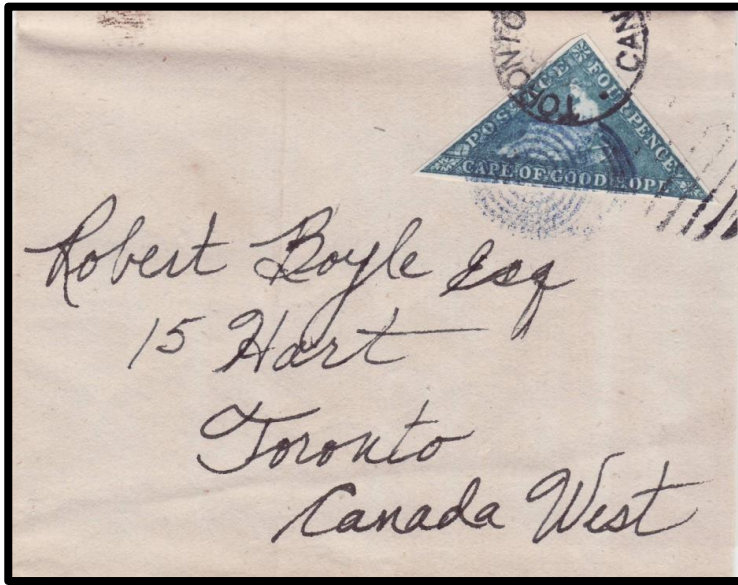 TORONTO
CAN
POSTAGE
FOUR PENCE
CAPE OF GOOD HOPE
Robert Boyle Esq
15 Hart
Toronto
Canada West